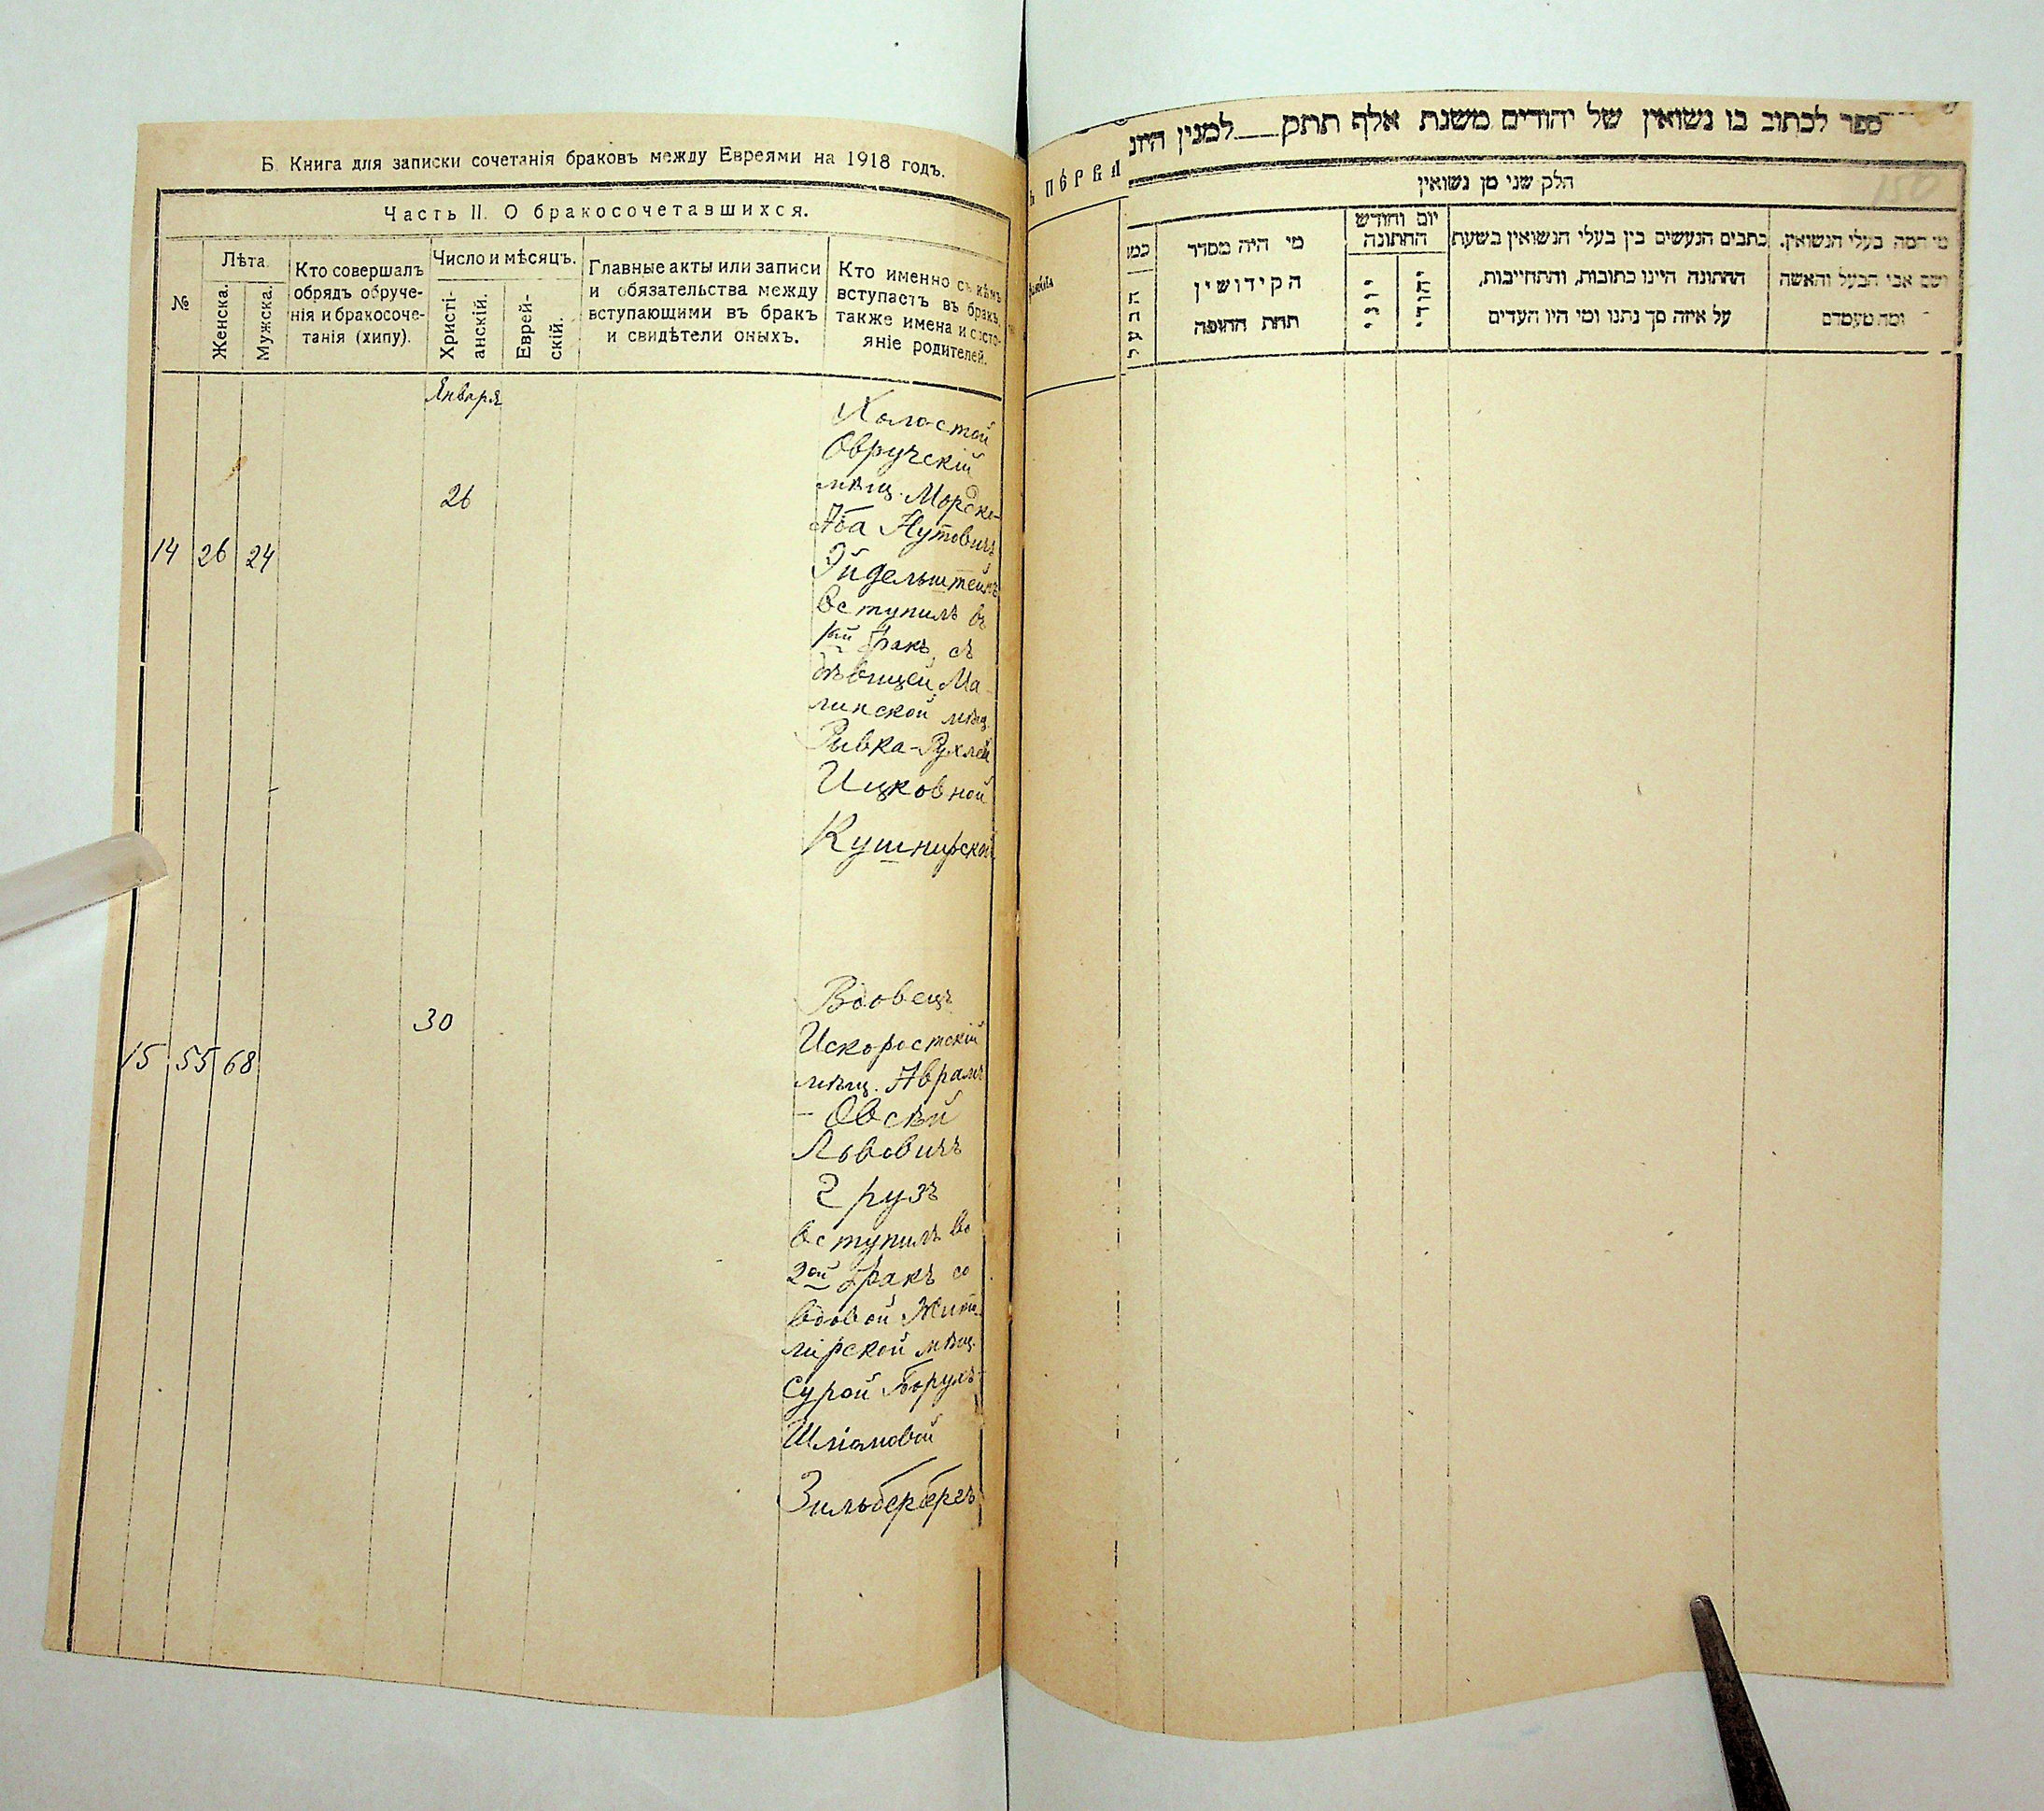 Б. Книга для записки сочетанія браковъ между Евреями на 1918 годъ.
Часть II. О бракосочетавшихся.
№
Лѣта.
Женска.
Мужска.
Кто совершалъ
обрядъ обруче-
нія и бракосоче-
танія (хипу).
Число и мѣсяцъ.
Христі-
анскій.
Еврей-
скій.
Главные акты или записи
и обязательства между
вступающими въ бракъ
и свидѣтели оныхъ.
Кто именно съ кѣмъ
вступаетъ въ бракъ,
также имена и состо-
яніе родителей.
Января
14 26 24
26
Холостой
Овручскій
мѣщ. Мордко-
Аба Нутовичъ
Эйдельштейнъ
вступилъ въ
1ый бракъ съ
дѣвицей Ма-
линской мѣщ.
Ривка-Рухлей
Ицковной
Кушнирской
15 55 68
30
Вдовецъ
Искоростскій
мѣщ. Аврамъ
- Овсѣй
Львовичъ
Грузъ
вступилъ во
2ой бракъ со
вдовой Жито-
мірской мѣщ.
Сурой Борухъ-
Шліомовой
Зильбербергъ
ספר לכתוב בו נשואין של יהודים משנת אלף תתק___למנין היונ
חלק שני מן נשואין
מי המה בעלי הנשואין.
ושם אבי הבעל והאשה
ומה מעמדם
כתבים הנעשים בין בעלי הנשואין בשעת
החתונה היינו כתובות, והתחייבות,
על איזה סך נתנו ומי היו העדים
יום וחודש
החתונה
יהודי
יוני
מי היה מסדר
הקידושין
תחת החופה
כמו
הבעל
Ь ПЕРВА